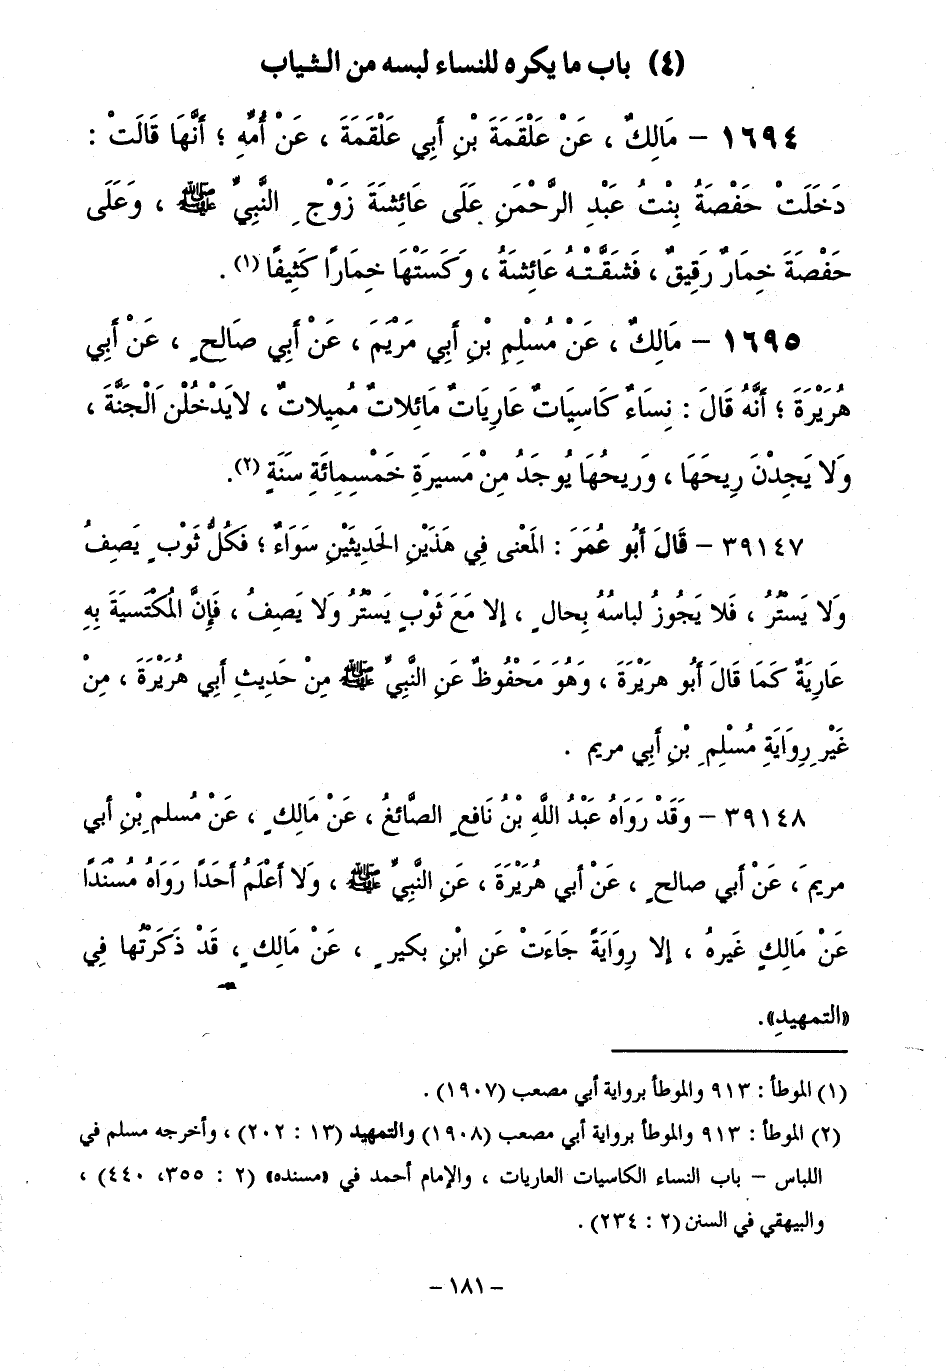 (٤) باب ما يكره للنساء لبسه من الثياب
١٦٩٤ – مَالِكٌ ، عَنْ عَلْقَمَةَ بْنِ أَبِي عَلْقَمَةَ ، عَنْ أُمِّهِ ؛ أَنَّهَا قَالَتْ :
دَخَلَتْ حَفْصَةُ بِنْتُ عَبْدِ الرَّحْمَنِ عَلَى عَائِشَةَ زَوْجِ النَّبِيِّ ﷺ ، وَعَلَى
حَفْصَةَ خِمَارٌ رَقِيقٌ ، فَشَقَّتْهُ عَائِشَةُ ، وَكَسَتْهَا خِمَارًا كَثِيفًا (١) .
١٦٩٥ – مَالِكٌ ، عَنْ مُسْلِمِ بْنِ أَبِي مَرْيَمَ ، عَنْ أَبِي صَالِحٍ ، عَنْ أَبِي
هُرَيْرَةَ ؛ أَنَّهُ قَالَ : نِسَاءٌ كَاسِيَاتٌ عَارِيَاتٌ مَائِلاتٌ مُمِيلاتٌ ، لا يَدْخُلْنَ الْجَنَّةَ ،
وَلَا يَجِدْنَ رِيحَهَا ، وَرِيحُهَا يُوجَدُ مِنْ مَسِيرَةِ خَمْسِمِائَةِ سَنَةٍ (٢) .
٣٩١٤٧ – قَالَ أَبُو عُمَرَ : المَعْنى فِي هَذَيْنِ الحَدِيثَيْنِ سَوَاءٌ ؛ فَكُلُّ ثَوْبٍ يَصِفُ
وَلا يَسْتُرُ ، فَلا يَجُوزُ لباسُهُ بِحالٍ ، إلا مَعَ ثَوْبٍ يَسْتُرُ وَلا يَصِفُ ، فَإِنَّ المُكْتَسِيَةَ بِهِ
عَارِيَةٌ كَمَا قَالَ أَبُو هريْرَةَ ، وَهُوَ مَحْفُوظٌ عَنِ النَّبِيِّ ﷺ مِنْ حَدِيثِ أَبِي هُرَيْرَةَ ، مِنْ
غَيْرِ رِوَايَةِ مُسْلِمِ بْنِ أَبِي مريم .
٣٩١٤٨ – وَقَدْ رَوَاهُ عَبْدُ اللَّهِ بْنُ نَافعٍ الصَّائغُ ، عَنْ مَالِكٍ ، عَنْ مُسلمِ بْنِ أَبي
مريمَ ، عَنْ أَبي صالحٍ ، عَنْ أَبي هُرَيْرَةَ ، عَنِ النَّبِيِّ ﷺ ، وَلا أَعْلَمُ أَحَدًا رَوَاهُ مُسْنَدًا
عَنْ مَالِكٍ غَيرهُ ، إلا رِوَايَةً جَاءَتْ عَنِ ابْنِ بكيرٍ ، عَنْ مَالكٍ ، قَدْ ذَكَرْتُها فِي
«التمهيدِ» .
(١) الموطأ : ٩١٣ والموطأ برواية أبي مصعب (١٩٠٧) .
(٢) الموطأ : ٩١٣ والموطأ برواية أبي مصعب (١٩٠٨) والتمهيد (١٣ : ٢٠٢) ، وأخرجه مسلم في
اللباس – باب النساء الكاسيات العاريات ، والإمام أحمد في «مسنده» (٢ : ٣٥٥، ٤٤٠) ،
والبيهقي في السنن (٢ : ٢٣٤) .
– ١٨١ –